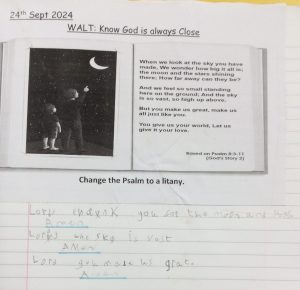 24th Sept 2024
WALT: Know God is always Close
When we look at the sky you have
made, We wonder how big it all is;
the moon and the stars shining
there; How far away can they be?
And we feel so small standing
here on the ground; And the sky
is so vast, so high up above.
But you make us great, make us
all just like you.
You give us your world, Let us
give it your love.
Based on Psalm 8:3-11
(God's Story 2)
Change the Psalm to a litany.
you for the moon and
Amen
Lord the sky is vast
Amen
Lord you make us grat.
Amen